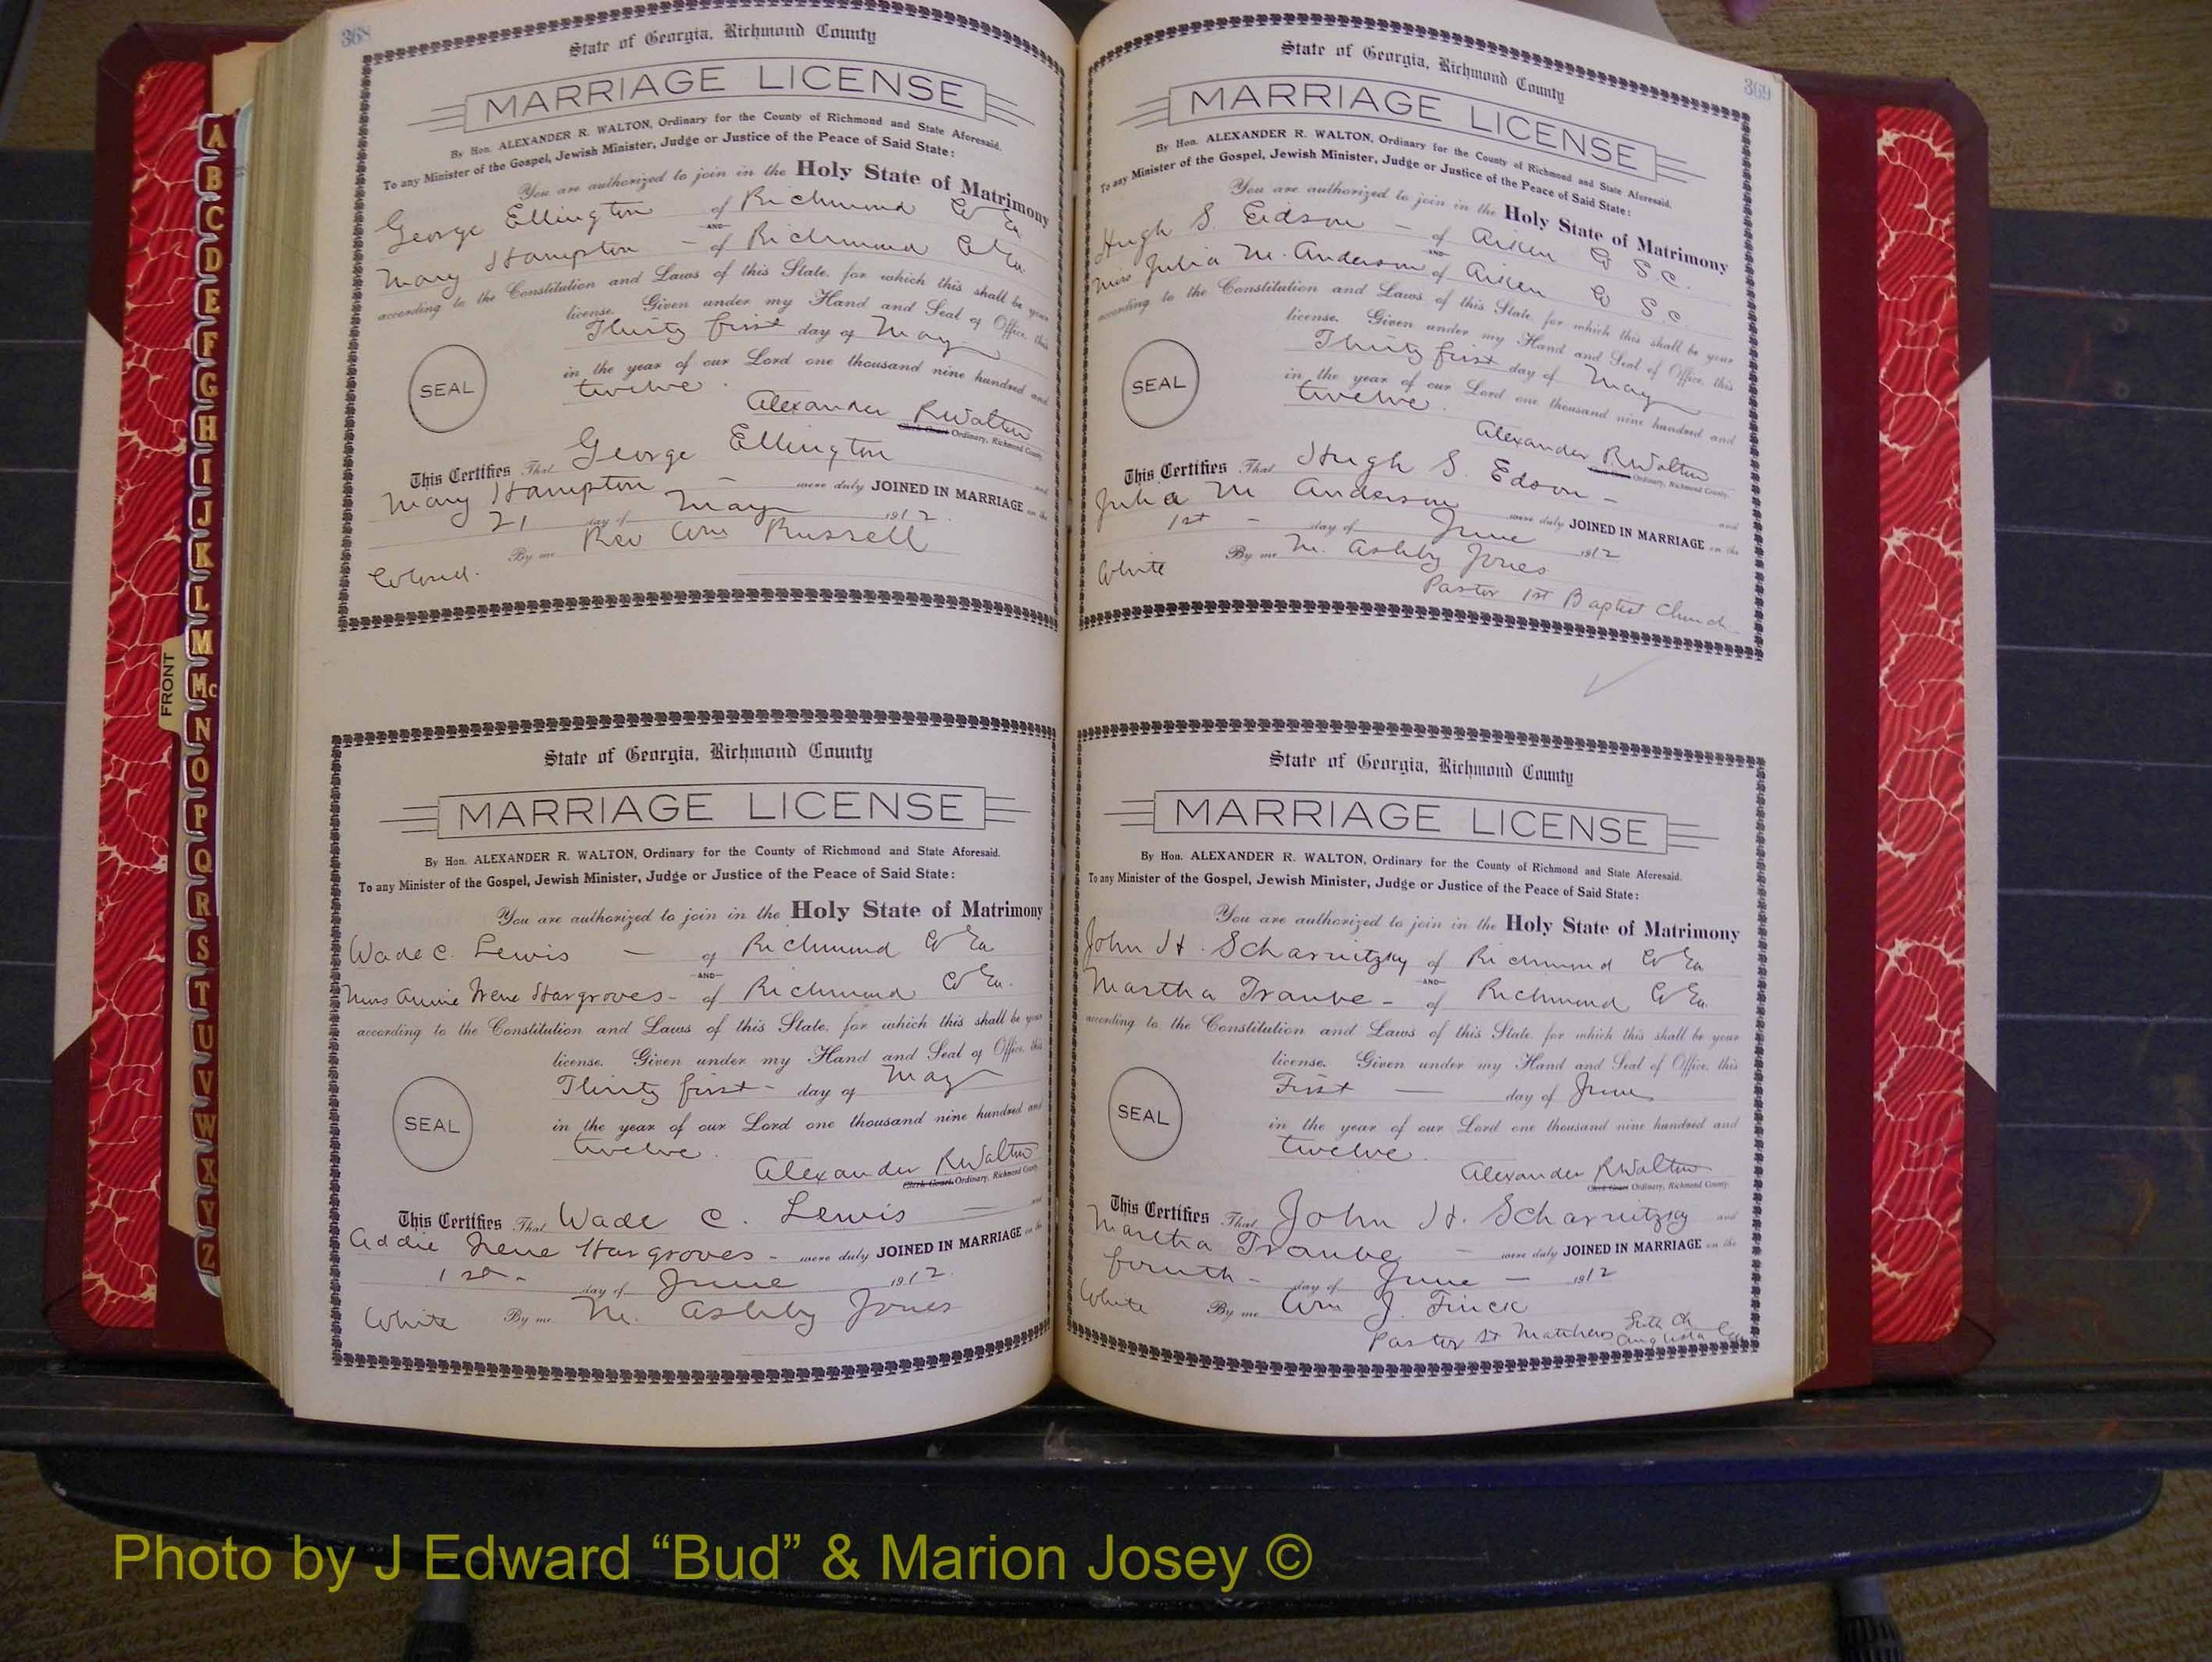 368
State of Georgia, Richmond County
MARRIAGE LICENSE
By Hon. ALEXANDER R. WALTON, Ordinary for the County of Richmond and State Aforesaid.
To any Minister of the Gospel, Jewish Minister, Judge or Justice of the Peace of Said State:
You are authorized to join in the Holy State of Matrimony
George Ellington of Richmond Co Ga
AND
Mary Hampton - of Richmond Co Ga
according to the Constitution and Laws of this State, for which this shall be your
license. Given under my Hand and Seal of Office, this
Thirty first day of May
in the year of our Lord one thousand nine hundred and
twelve.
SEAL
Alexander R Walton
Clerk Court Ordinary, Richmond County
This Certifies That George Ellington and
Mary Hampton - were duly JOINED IN MARRIAGE on the
21 day of May 1912.
By me Rev Wm Russell
Colored.
State of Georgia, Richmond County
MARRIAGE LICENSE
By Hon. ALEXANDER R. WALTON, Ordinary for the County of Richmond and State Aforesaid.
To any Minister of the Gospel, Jewish Minister, Judge or Justice of the Peace of Said State:
You are authorized to join in the Holy State of Matrimony
Wade C. Lewis - of Richmond Co Ga
AND
Miss Annie Irene Hargroves - of Richmond Co Ga.
according to the Constitution and Laws of this State, for which this shall be your
license. Given under my Hand and Seal of Office, this
Thirty first - day of May
in the year of our Lord one thousand nine hundred and
twelve.
SEAL
Alexander R Walton
Clerk Court Ordinary, Richmond County
This Certifies That Wade C. Lewis - and
Addie Irene Hargroves - were duly JOINED IN MARRIAGE on the
1st - day of June 1912.
White By me M. Ashby Jones
369
State of Georgia, Richmond County
MARRIAGE LICENSE
By Hon. ALEXANDER R. WALTON, Ordinary for the County of Richmond and State Aforesaid.
To any Minister of the Gospel, Jewish Minister, Judge or Justice of the Peace of Said State:
You are authorized to join in the Holy State of Matrimony
Hugh S. Eidson - of Aiken Co S.C.
AND
Miss Julia M. Anderson of Aiken Co S.C.
according to the Constitution and Laws of this State, for which this shall be your
license. Given under my Hand and Seal of Office, this
Thirty first day of May
in the year of our Lord one thousand nine hundred and
twelve.
SEAL
Alexander R Walton
Clerk Court Ordinary, Richmond County.
This Certifies That Hugh S. Edson - and
Julia M Anderson were duly JOINED IN MARRIAGE on the
1st - day of June 1912
White By me M. Ashby Jones
Pastor 1st Baptist Church
State of Georgia, Richmond County
MARRIAGE LICENSE
By Hon. ALEXANDER R. WALTON, Ordinary for the County of Richmond and State Aforesaid.
To any Minister of the Gospel, Jewish Minister, Judge or Justice of the Peace of Said State:
You are authorized to join in the Holy State of Matrimony
John H. Scharnitzky of Richmond Co Ga
AND
Martha Traube - of Richmond Co Ga.
according to the Constitution and Laws of this State, for which this shall be your
license. Given under my Hand and Seal of Office, this
First day of June
in the year of our Lord one thousand nine hundred and
twelve.
SEAL
Alexander R Walton
Clerk Court Ordinary, Richmond County.
This Certifies That John H. Scharnitzky and
Martha Traube - were duly JOINED IN MARRIAGE on the
fourth - day of June - 1912
White By me Wm J. Finck
Pastor St Matthews Luth Ch
Augusta Ga
FRONT
A
B
C
D
E
F
G
H
I
J
K
L
M
Mc
N
O
P
Q
R
S
T
U
V
W
X
Y
Z
Photo by J Edward “Bud” & Marion Josey ©